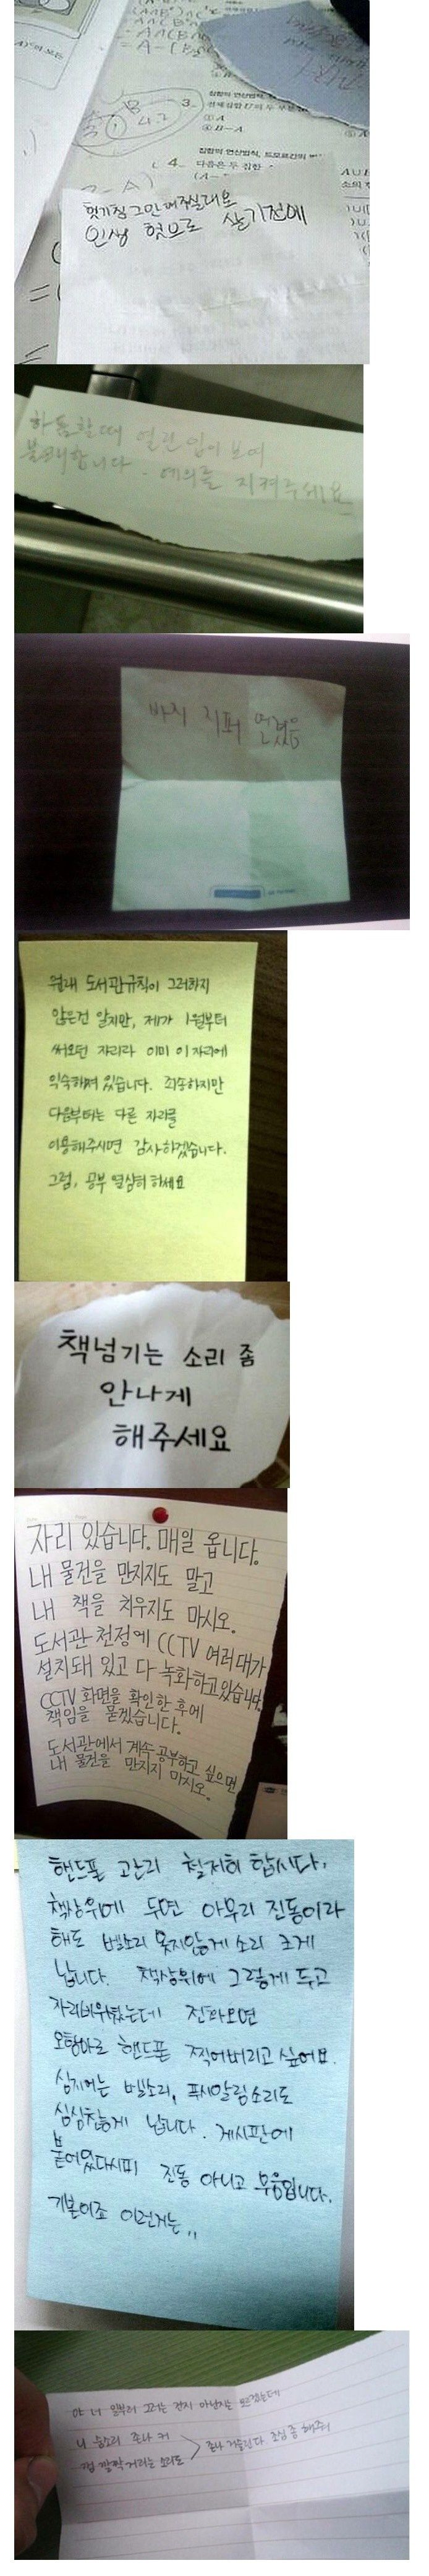 3.
전체집합 U의 두 부분
① A
④ B-A
집합의 연산법칙, 드모르간의
4.
다음은 두 집합
헛기침 그만 해주실래요
인생 헛으로 살기전에
하품할때 열린 입이 보여
불쾌합니다. 예의를 지켜주세요
바지 지퍼 열렸음
원래 도서관규칙이 그러하지
않은건 알지만, 제가 1월부터
써오던 자리라 이미 이 자리에
익숙해져 있습니다. 죄송하지만
다음부터는 다른 자리를
이용해주시면 감사하겠습니다.
그럼, 공부 열심히 하세요
책넘기는 소리 좀
안나게
해주세요
자리 있습니다. 매일 옵니다.
내 물건을 만지지도 말고
내 책을 치우지도 마시오.
도서관 천정에 CCTV 여러대가
설치돼 있고 다 녹화하고있습니다.
CCTV 화면을 확인한 후에
책임을 묻겠습니다.
도서관에서 계속 공부하고 싶으면
내 물건을 만지지 마시오.
핸드폰 관리 철저히 합시다.
책상위에 두면 아무리 진동이라
해도 벨소리 못지않게 소리 크게
납니다. 책상위에 그렇게 두고
자리비워놨는데 전화오면
오함마로 핸드폰 찍어버리고 싶어요.
심지어는 벨소리, 푸시알림소리도
심심찮게 납니다. 게시판에
붙어있다시피 진동 아니고 무음입니다.
기본이죠 이런거는,,
야 너 일부러 그러는 건지 아닌지는 모르겠는데
니 숨소리 존나 커
껌 짝짝 거리는 소리도
존나 거슬린다 조심 좀 해줘